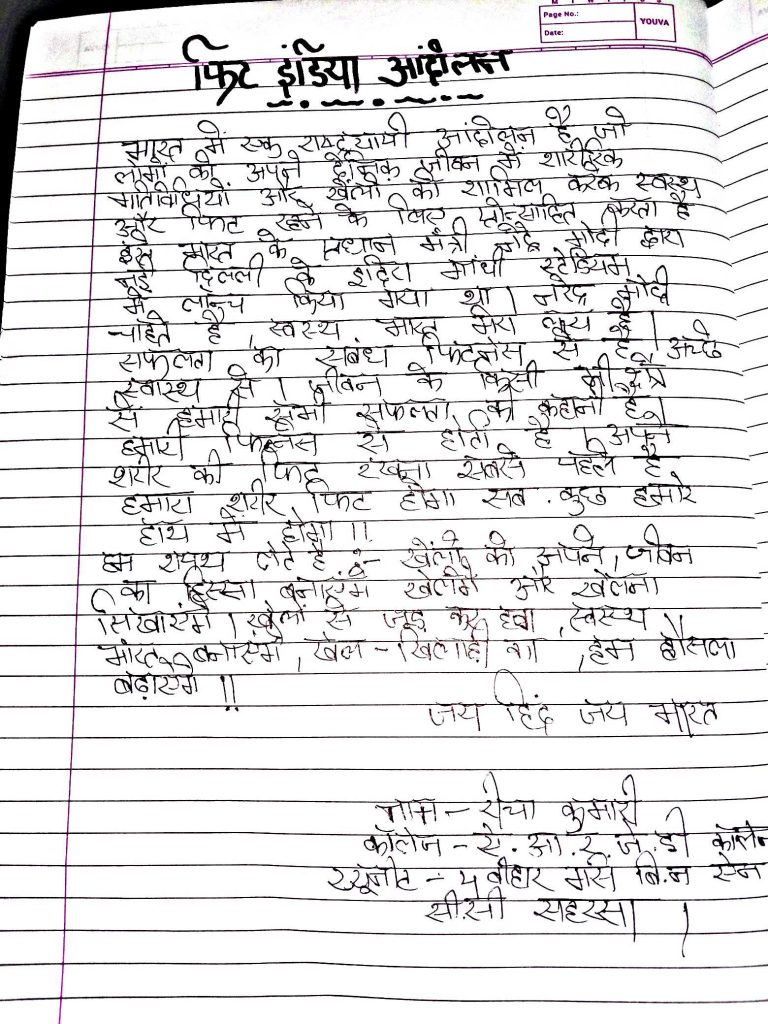 Page No.:
Date:
YOUVA
फिट इंडिया आंदोलन
भारत में एक राष्ट्रव्यापी आंदोलन है जो
लोगों को अपने दैनिक जीवन में शारीरिक
गतिविधियों और खेलों को शामिल करके स्वस्थ
और फिट रहने के लिए प्रोत्साहित करता है
इसे भारत के प्रधान मंत्री नरेंद्र मोदी द्वारा
नई दिल्ली के इंदिरा गांधी स्टेडियम
में लॉन्च किया गया था। नरेंद्र मोदी
चाहते है, स्वस्थ भारत मेरा लक्ष्य है।
सफलता का संबंध फिटनेस से है। अच्छे
स्वास्थ से। जीवन के किसी भी क्षेत्र
से हमारी सभी सफलता की कहानी है,
हमारी फिटनेस से होती है। अपने
शरीर को फिट रखना सबसे पहले है
हमारा शरीर फिट होगा सब कुछ हमारे
हाथ में होगा।।
हम शपथ लेते है :- खेलों को अपने, जीवन
का हिस्सा बनाएंगे खेलेंगे और खेलना
सिखाएंगे। खेलों से जुड़ कर हवा, स्वस्थ
भारत बनाएंगे, खेल - खिलाड़ी का, हम हौसला
बढ़ाएंगे !!
जय हिंद जय भारत
नाम - रीचा कुमारी
कॉलेज - ए. आ. र. जे. डी कॉलेज
यूनीट - 4 बीहार गर्ल्स बि.न सेन
सी.सी सहरसा।